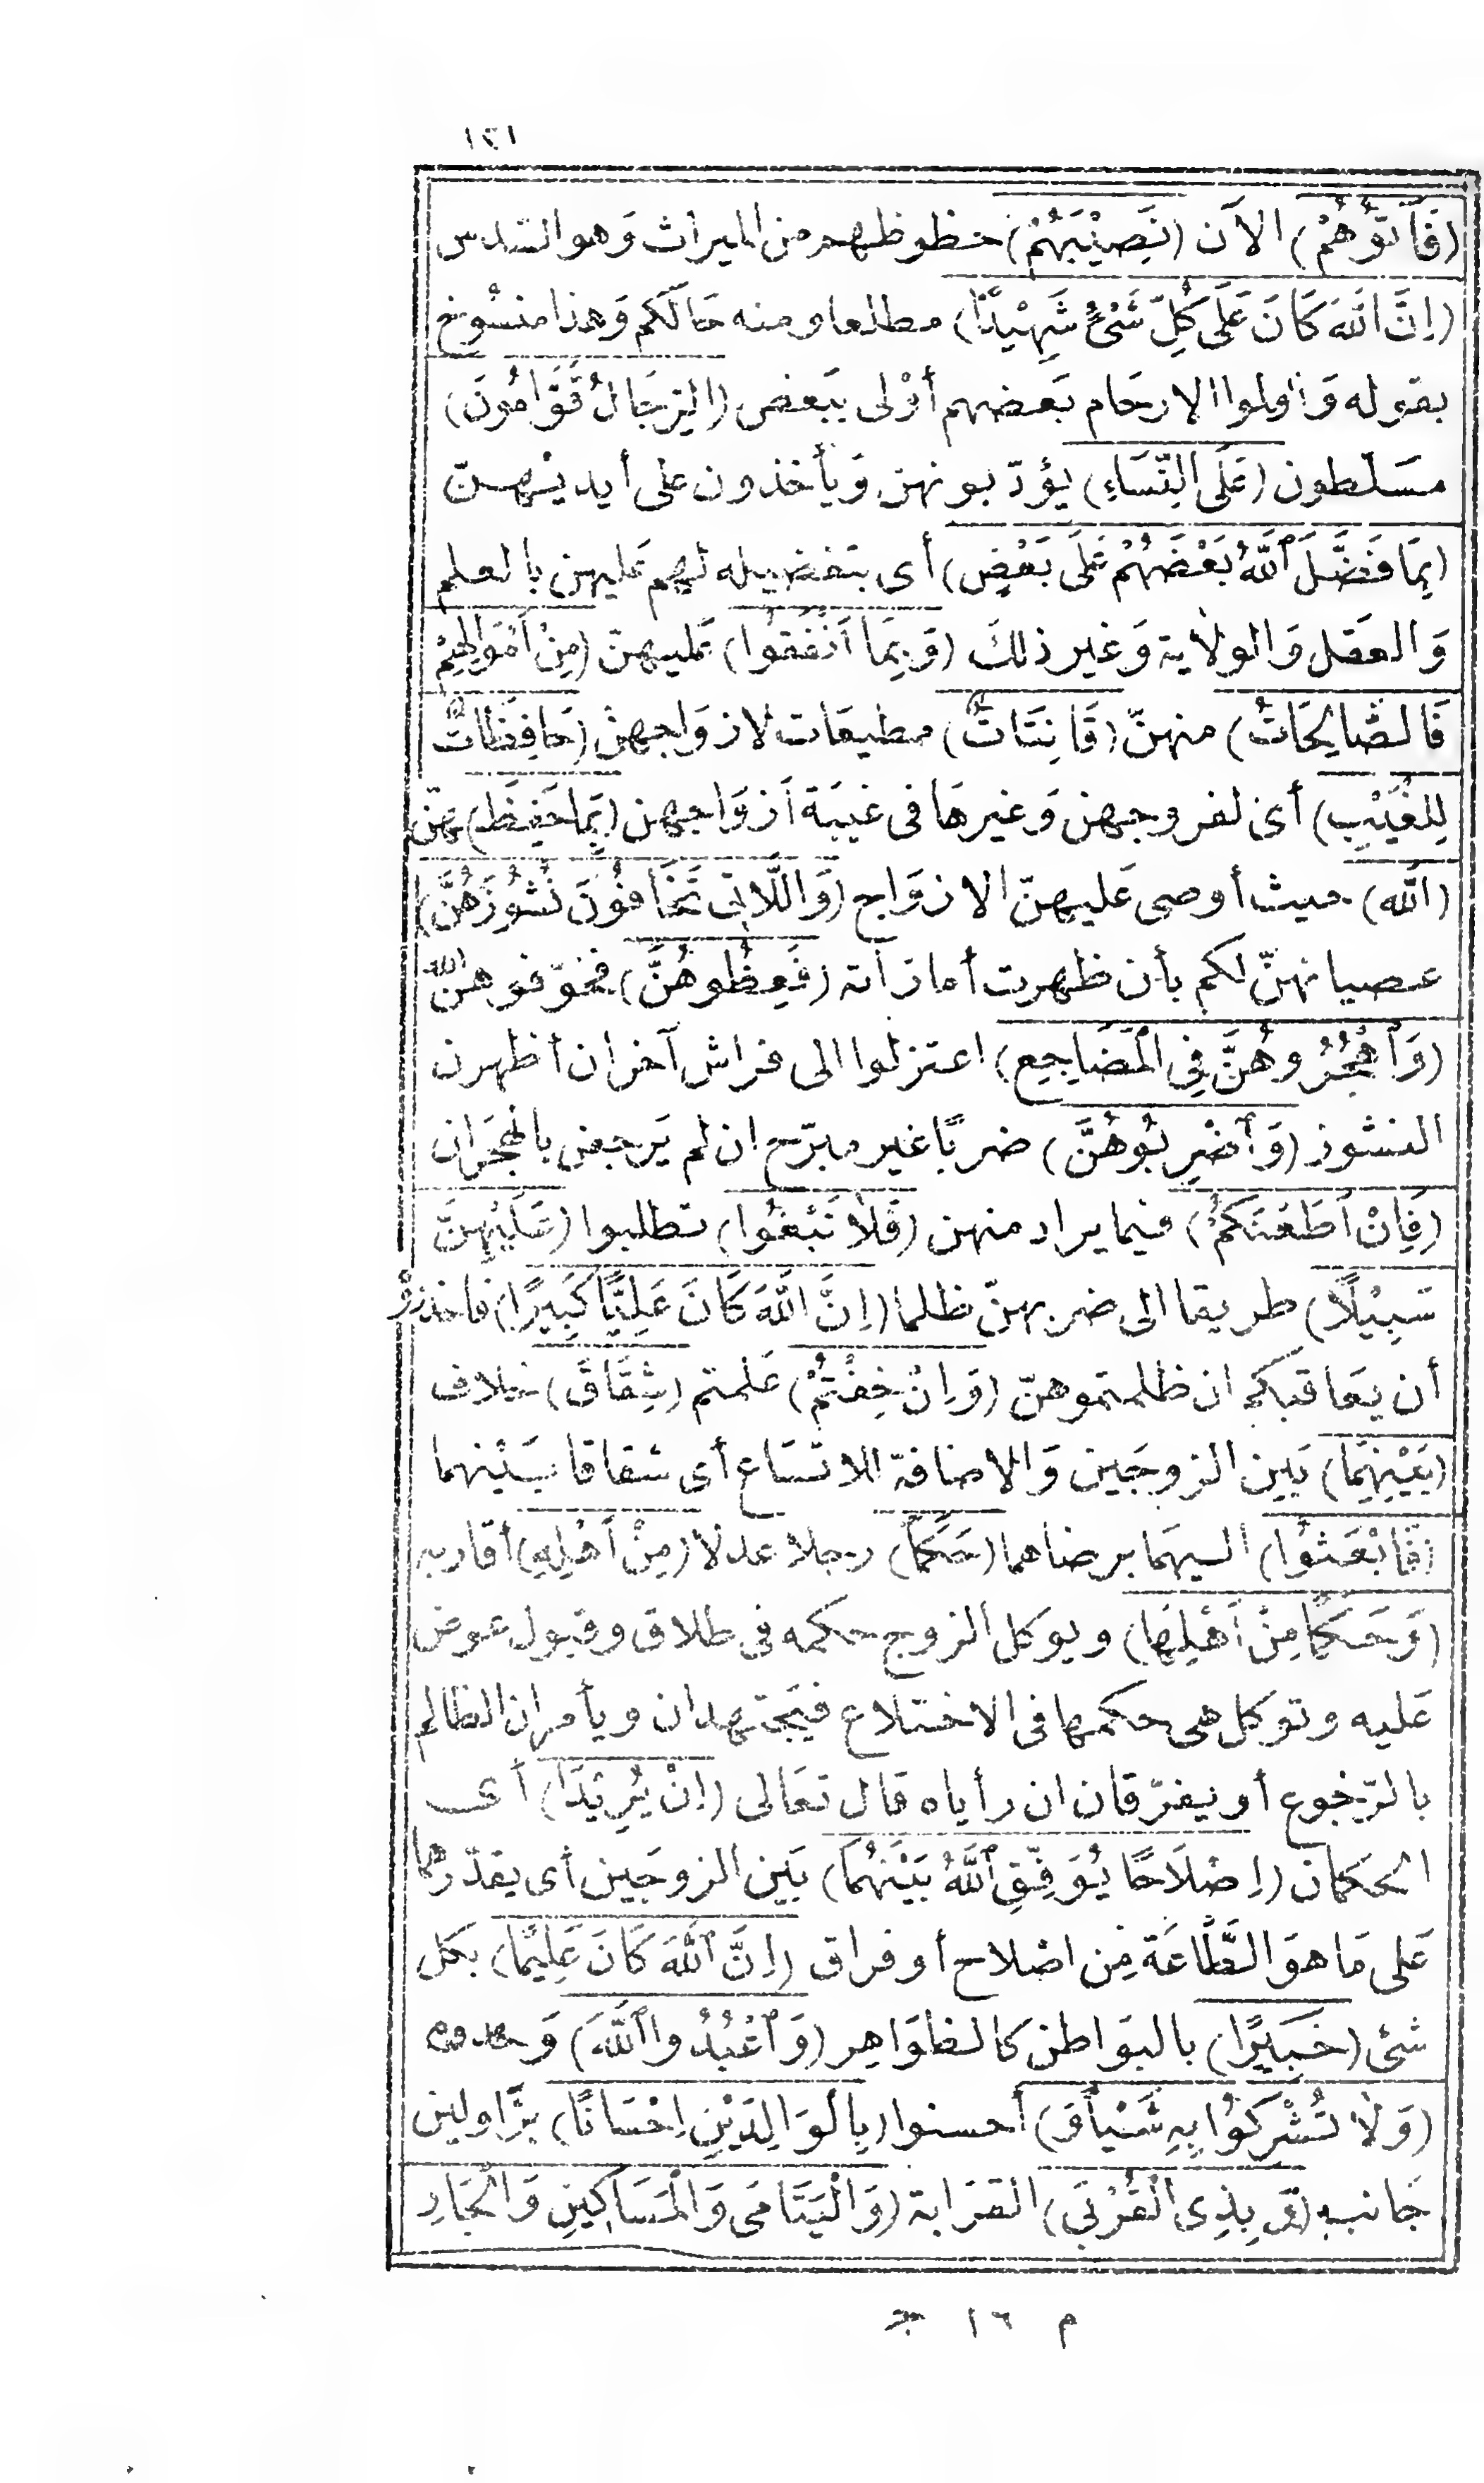 ١٢١
(فَآتُوهُمْ) الآن (نَصِيْبَهُمْ) حظوظهم من الميراث وَهو السّدس
(اِنَّ اللّٰهَ كَانَ عَلَى كُلِّ شَىْءٍ شَهِيْدًا) مطلعا ومنه حَالكم وَهذا منسُوخ
بقوله وَأولوا الارحَام بَعضهم أوْلى ببَعض (الرِّجَالُ قَوَّامُونَ)
مسَلّطون (عَلَى النِّسَاءِ) يؤدّبونهن وَيأخذون على أيديْهنّ
(بِمَا فَضَّلَ ٱللّٰهُ بَعْضَهُمْ عَلَى بَعْضٍ) أى بتفضيله لهم عَليهن بالعلم
وَالعَقل وَالولاية وَغير ذلكَ (وَبِمَا أَنْفَقُوا) عَليهنّ (مِنْ اَمْوَالِهِمْ
فَالصَّالِحَاتُ) منهنّ (قَانِتَاتٌ) مطيعَات لازوَاجهنّ (حَافِظَاتٌ
لِلْغَيْبِ) أى لفروجهن وَغيرهَا فى غيبَة أزوَاجهن (بِمَا حَفِظَ) هنّ
(اَللّٰه) حيث أوصى عَليهنّ الازوَاج (وَاللَّاتِى تَخَافُونَ نُشُوزَهُنَّ)
عصيانهنّ لكم بأن ظهرت أمارَاته (فَعِظُوهُنَّ) فخوّفوهنّ الله
(وَٱهْجُرُوهُنَّ فِى الْمَضَاجِعِ) اعتزلوا الى فراش آخر ان أظهرن
النشوز (وَٱضْرِبُوهُنَّ) ضربًا غير مبرّح ان لم يَرجعن بالهجَران
(فَاِنْ اَطَعْنَكُمْ) فيما يراد منهن (فَلَا تَبْغُوا) تطلبوا (عَلَيْهِنَّ
سَبِيْلًا) طريقا الى ضربهنّ ظلما (اِنَّ اللّٰهَ كَانَ عَلِيًّا كَبِيْرًا) فاحذروْ
أن يعَاقبكم ان ظلمتموهنّ (وَاِنْ خِفْتُمْ) عَلمتم (شِقَاقَ) خلاف
(بَيْنِهِمَا) بَين الزوجَين وَالاضافة للاتسَاع أى شقاقا بَيْنهما
(فَابْعَثُوا) اليهمَا برضاهما (حَكَمًا) رجلا عدلا (مِنْ اَهْلِهِ) أقاربه
(وَحَكَمًا مِنْ أَهْلِهَا) ويوكل الزوج حكمه فى طلاق وقبول عوض
عَليه وتوكل هى حكمها فى الاختلاع فيَجتهدان ويأمران الظالم
بالرّجوع أو يفرّقان ان رأياه قال تعَالى (اِنْ يُرِيْدَا) أى
الحكمان (اِصْلَاحًا يُوَفِّقِ ٱللّٰهُ بَيْنَهُمَا) بَين الزوجَين أى يقدّرهما
عَلى مَا هوَ الطَّاعَة مِن اصلاح أو فراق (اِنَّ ٱللّٰهَ كَانَ عَلِيْمًا) بكل
شئ (خَبِيْرًا) بالبوَاطن كالظوَاهِر (وَٱعْبُدُوا ٱللّٰهَ) وَحدوه
(وَلَا تُشْرِكُوا بِهِ شَيْأً وَ) أحسنوا (بِالْوَالِدَيْنِ اِحْسَانًا) برًّا ولين
جَانب (وَبِذِى الْقُرْبَى) القرَابة (وَالْيَتَامَى وَالْمَسَاكِينِ وَالْجَارِ
م ١٦ جـ